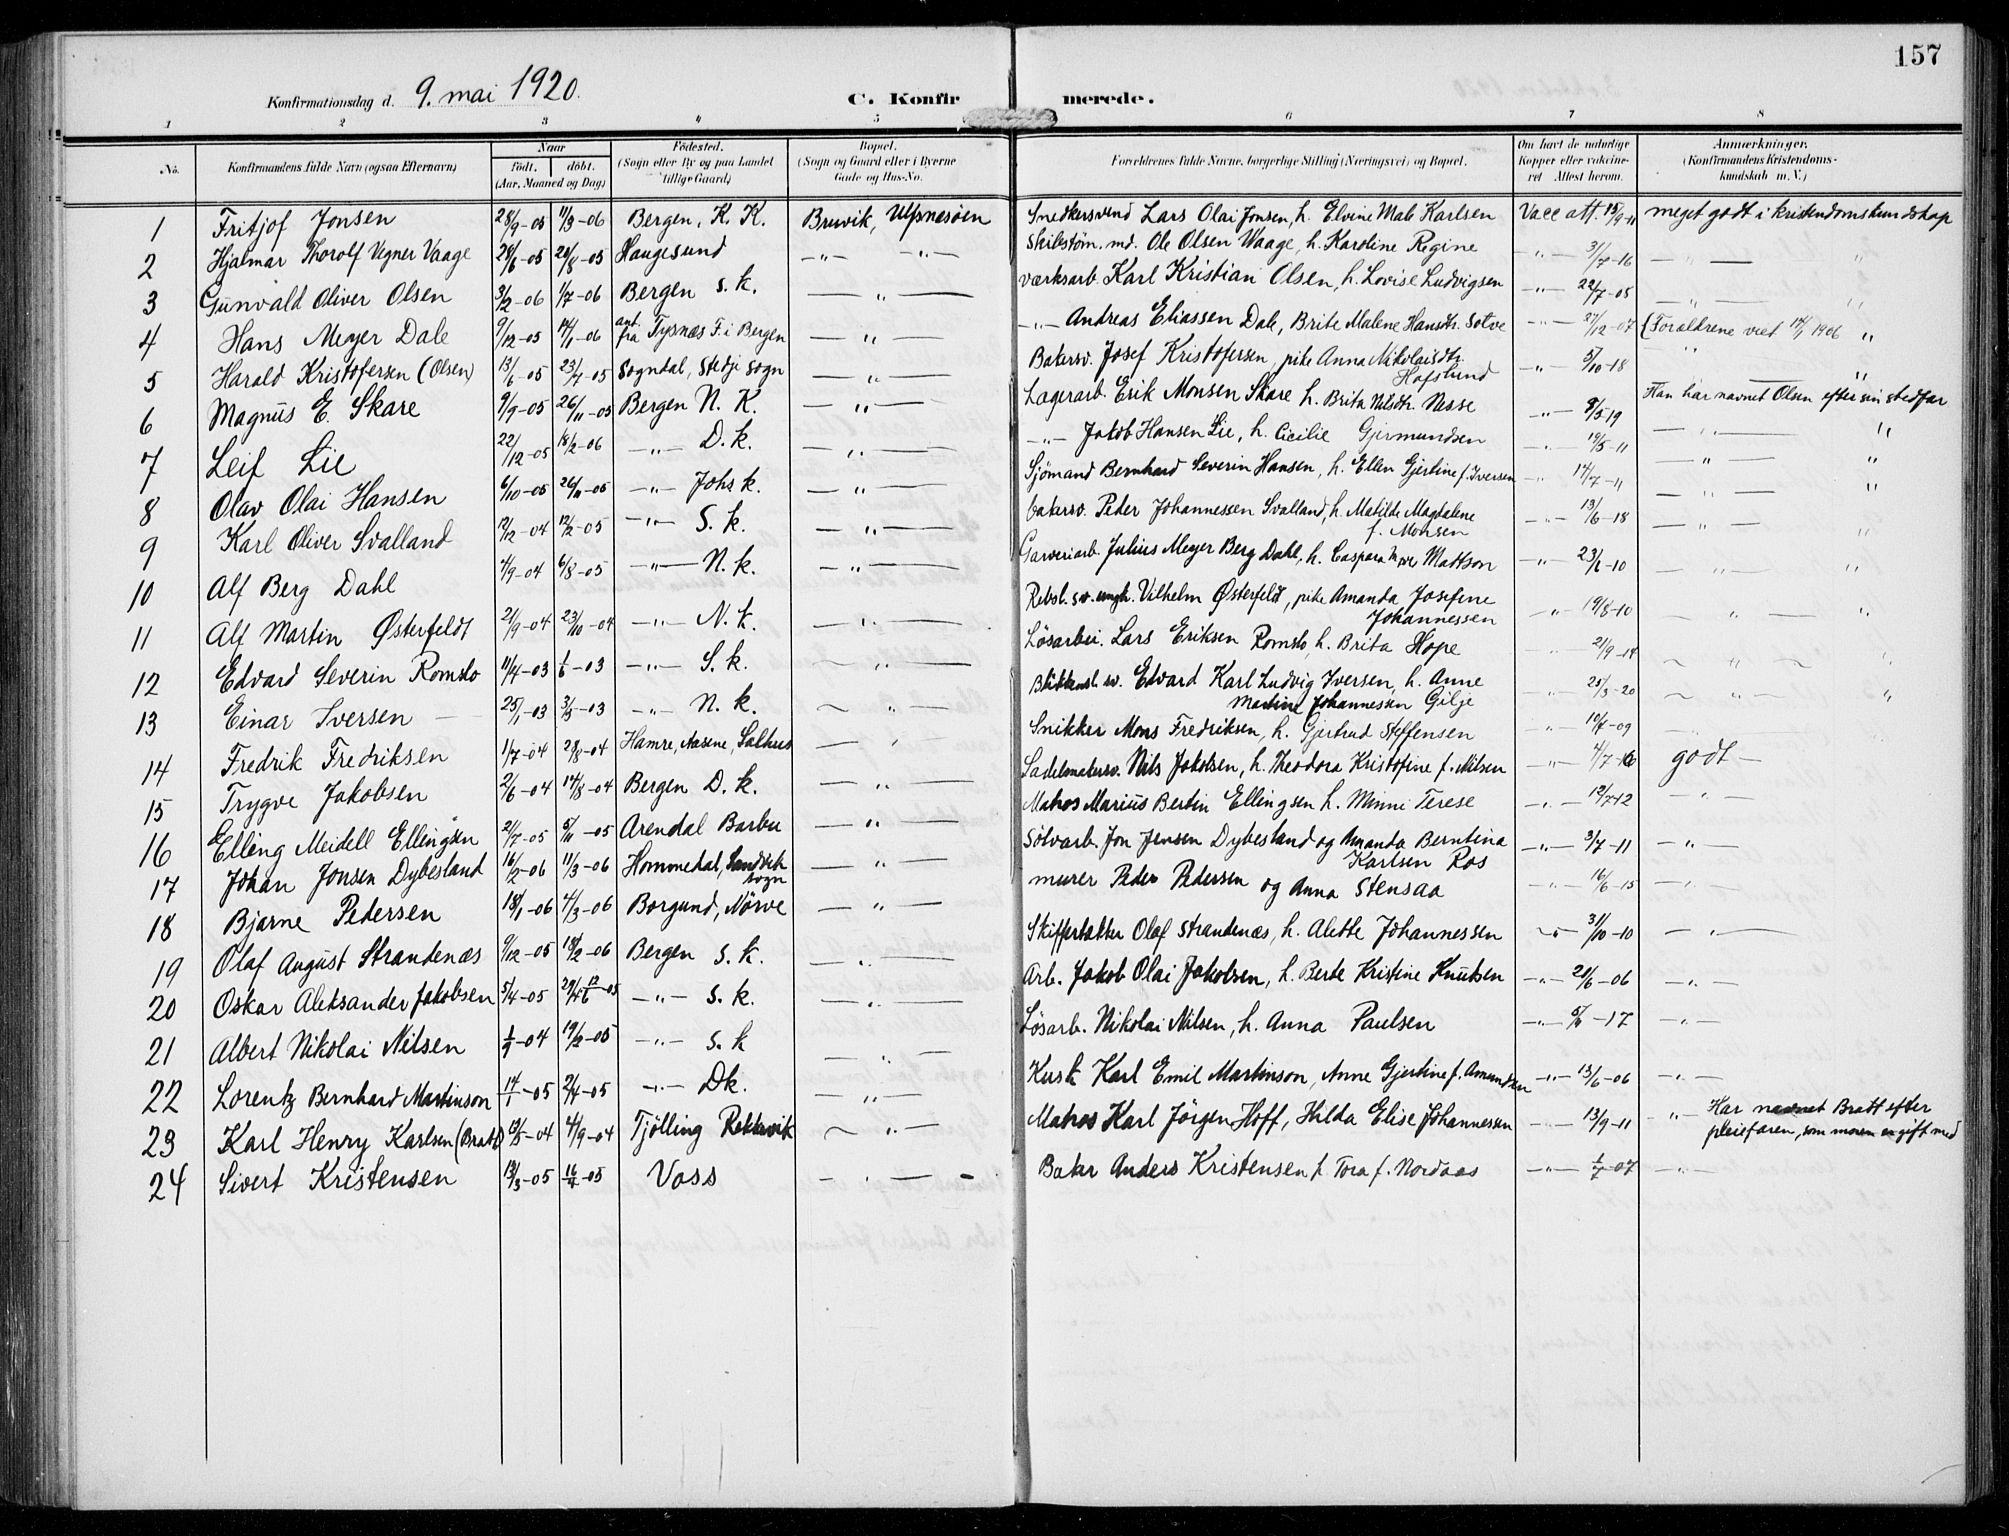 157
Konfirmationsdag d. 9. mai 1920.
C. Konfirmerede.
1 2 3 4 5 6 7 8
No.
Konfirmandens fulde Navn (ogsaa Efternavn)
Naar
födt. döbt.
(Aar, Maaned og Dag)
Födested.
(Sogn eller By og paa Landet tillige Gaard)
Bopæl.
(Sogn og Gaard eller i Byerne Gade og Hus-No.
Forældrenes fulde Navne, borgerlige Stilling (Næringsvei) og Bopæl.
Om havt de naturlige Kopper eller vaccineret Attest herom.
Anmærkninger.
(Konfirmandens Kristendomskundskab m. V.)
1 Fritjof Jonsen 28/9-05 11/3-06 Bergen, K. K. Bruvik, Ulfsnesöen Snedkersvend Lars Olai Jonsen, h. Elvine Male Karlsen Vacc att. 15/9-11 meget godt i kristendomskundskap
2 Hjalmar Thorolf Vegner Vaage 28/6-05 20/8-05 Haugesund -"- -"- Skibstøm. md. Ole Olsen Waage, h. Karoline Regine -"- 31/7-16 -"- "
3 Gunvald Oliver Olsen 3/2-06 1/7-06 Bergen S. k. -"- værksarb. Karl Kristian Olsen, h. Lovise Ludvigsen -"- 22/7-08 -"- "
4 Hans Meyer Dale 9/12-05 14/1-06 ant. fra Tysnæs F i Bergen -"- -"- Andreas Eliassen Dale, Brite Malene Hansdtr. Solve -"- 27/12-07 (Foraldrene viet 14/1 1906 "
5 Harald Kristofersen (Olsen) 13/6-05 23/7-05 Sogndal, Stedje Sogn -"- Bakersv. Josef Kristofersen, pike Anna Nikolaisdtr. Hafslund -"- 5/10-18 " "
Han har navnet Olsen efter sin stedfar
6 Magnus E. Skare 9/9-05 26/11-05 Bergen N. K. -"- Lagerarb. Erik Monsen Skare h. Brita Nilsdtr. Nesse -"- 8/5 19 -"- "
7 Leif Lie 22/12-05 18/2-06 -"- D. k. -"- -"- Jakob Hansen Lie, h. Cicilie Gjermundsen -"- 19/5-11 -"- "
8 Olav Olai Hansen 6/10-05 26/11-05 -"- Johs k. -"- Sjömand Bernhard Severin Hansen, h. Ellen Gjertine f. Iversen -"- 14/7-11 -"- "
9 Karl Oliver Svalland 12/12-04 12/2-05 -"- S. k. -"- bakersv. Peder Johannessen Svalland, h. Matilde Magdalene f. Monsen -"- 13/6-18 -"- "
10 Alf Berg Dahl 4/9-04 6/8-05 -"- N. k. -"- Garveriarb. Julius Meyer Berg Dahl, h. Caspara Mattson -"- 23/6-10 -"- "
11 Alf Martin Østerfeldt 21/9-04 23/10-04 -"- N. k. -"- Rebsl. sv. ungk. Vilhelm Østerfeldt, pike Amanda Josefine Johannessen -"- 19/8-10 " "
12 Edvard Severin Romslo 11/4-03 1/6-03 -"- S. k. " Lösarbei. Lars Eriksen Romslo, h. Brita Hope -"- 21/9-14 " "
13 Einar Iversen 25/1-03 3/5-03 -"- N. k. " Blikkensl. sv. Edvard Karl Ludvig Iversen, h. Anne Martine Johannessen Gilje " 25/3-20 " "
14 Fredrik Fredriksen 1/7-04 28/8-04 Hamre, Aasene, Salhus " Snikker Mons Fredriksen, h. Gjertrud Steffensen " -09
15 Trygve Jakobsen 2/6-04 14/8-04 Bergen D. k. " Sadelmakersv. Nils Jakobsen, h. Theodora Kristofine f. Nilsen -"- 4/7-16 godt -
16 Elling Meidell Ellingsen 21/7-05 5/11-05 Arendal Barbu -"- Matros Marius Bertin Ellingsen h. Minni Terese -"- 19/7-12 -"-
17 Johan Jonsen Dybesland 16/2-06 11/3-06 Hommedal, Landvik sogn -"- Sölvarb. Jon Jensen Dybesland og Amanda Berntina Karlsen Ros -"- 3/7-11 -"-
18 Bjarne Pedersen 18/1-06 4/3-06 Borgund, Nörve -"- murer Peder Pedersen og Anna Stensaa -"- 16/6-15 -"-
19 Olaf August Strandenæs 9/12-05 18/2-06 Bergen S. k. -"- Skiffertækker Olaf Strandenæs, h. Alette Johannessen -"- 31/10-10 -"-
20 Oskar Aleksander Jakobsen 5/4-05 -05 -"- S. k. -"- Arb. Jakob Olai Jakobsen, h. Berte Kristine Knutsen -"- 20/6-06 -"-
21 Albert Nikolai Nilsen 1/9-04 19/2-05 -"- S. k -"- Lösarb. Nikolai Nilsen, h. Anna Paulsen -"- -17 -"-
22 Lorentz Bernhard Martinson 14/1-05 2/4-05 -"- Dk. -"- Kusk Karl Emil Martinson, Anne Gjertine f. Amundsen -"- 13/6-06 -"-
23 Karl Henry Karlsen (Bratt) -04 4/9-04 Tjölling Rekkevik " Matros Karl Jörgen Hoff, Hilda Elise Johannessen -"- 13/9-11 -"- Har navnet Bratt efter
pleiefaren, som moren er gift med
24 Sivert Kristensen 12/3-05 16/4-05 Voss -"- - Baker Anders Kristensen h. Tora f. Nordaas -"- 1/7-07 -"-